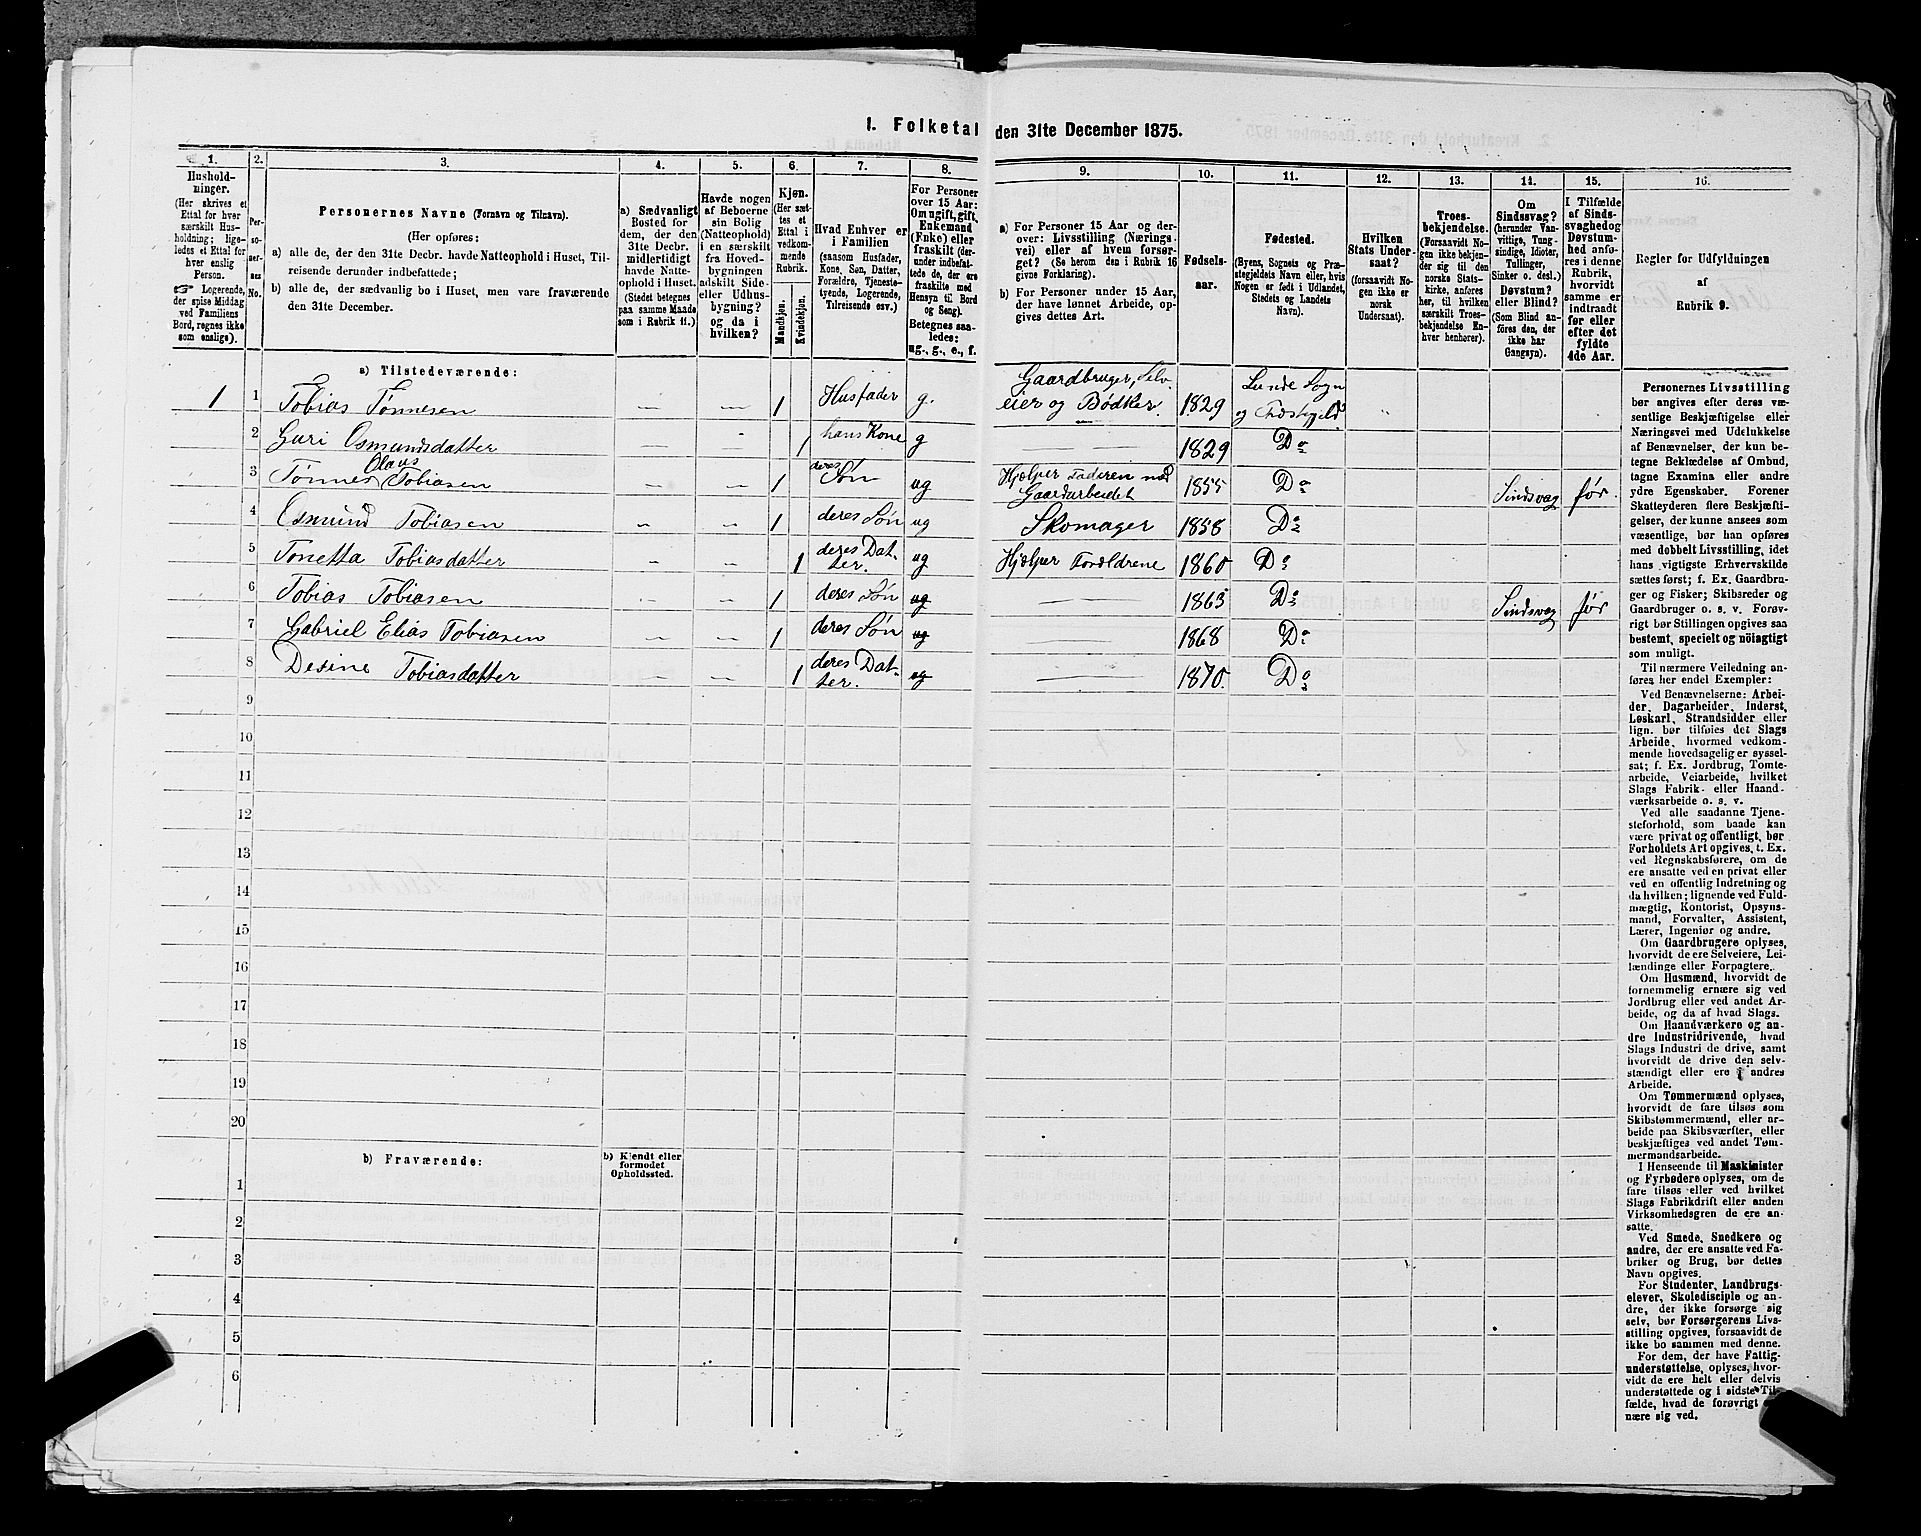 1. Folketal den 31te December 1875.
1.
Hushold-
ninger.
(Her skrives et
Ettal for hver
særskilt Hus-
holdning; lige-
ledes et Ettal for
hver enslig
Person.
☞ Logerende,
der spise Middag
ved Familiens
Bord, regnes ikke
som enslige).
2.
Per-
so-
ner-
nes
No.
3.
Personernes Navne (Fornavn og Tilnavn).
(Her opføres:
a) alle de, der den 31te Decbr. havde Natteophold i Huset, Til-
reisende derunder indbefattede;
b) alle de, der sædvanlig bo i Huset, men vare fraværende
den 31te December.
4.
a) Sædvanligt
Bosted for
dem, der den
31te Decbr.
midlertidigt
havde Natte-
ophold i Huset.
(Stedet betegnes
paa samme Maade
som i Rubrik 11.)
5.
Havde nogen
af Beboerne
sin Bolig
(Natteophold)
i en særskilt
fra Hoved-
bygningen
adskilt Side-
eller Udhus-
bygning?
og da i
hvilken?
6.
Kjøn.
(Her sæt-
tes et
Ettal i
vedkom-
mende
Rubrik.
Mandkjøn.
Kvindekjøn.
7.
Hvad Enhver er
i Familien
(saasom Husfader,
Kone, Søn, Datter,
Forældre, Tjeneste-
tyende, Logerende,
Tilreisende osv.)
8.
For Personer
over 15 Aar:
Om ugift, gift,
Enkemand
(Enke) eller
fraskilt (der-
under indbefat-
tede de, der ere
fraskilte med
Hensyn til Bord
og Seng).
Betegnes saa-
ledes:
ug., g., e., f.
9.
a) For Personer 15 Aar og der-
over: Livsstilling (Nærings-
vei) eller af hvem forsør-
get? (Se herom den i Rubrik 16
givne Forklaring).
b) For Personer under 15 Aar,
der have lønnet Arbeide, op-
gives dettes Art.
10.
Fødsels-
aar.
11.
Fødested.
(Byens, Sognets og Præ-
stegjeldets Navn eller, hvis
Nogen er født i Udlandet,
Stedets og Landets
Navn).
12.
Hvilken
Stats Under-
saat?
(forsaavidt No-
gen ikke er
norsk
Undersaat).
13.
Troes-
bekjendelse.
(Forsaavidt No-
gen ikke bekjen-
der sig til den
norske Stats-
kirke, anføres
her, til hvilken
særskilt Troes-
bekjendelse En-
hver henhører).
14.
Om
Sindssvag?
(herunder Van-
vittige, Tung-
sindige, Idioter,
Tullinger,
Sinker o. desl.)
Døvstum?
eller Blind?
(Som Blind an-
føres den, der
ikke har
Gangsyn).
15.
I Tilfælde
af Sinds-
svaghed og
Døvstum-
hed anfø-
res i denne
Rubrik,
hvorvidt
samme er
indtraadt
før eller
efter det
fyldte
4de Aar.
16.
Regler for Udfyldningen
af
Rubrik 9.
a) Tilstedeværende:
1 1 Tobias Tønnesen — — 1 Husfader g. Gaardbruger, Selv-
eier og Bødker. 1829 Lunde Sogn
og Præstegjeld "
2 Guri Osmundsdatter — - 1 hans Kone g — 1829 Do
3 Tønnes Olaus Tobiasen — — 1 deres Søn ug Hjælper Faderen med
Gaardarbeidet 1855 Do Sindsvag før.
4 Osmund Tobiasen — — 1 deres Søn ug Skomager 1858 Do
5 Tonetta Tobiasdatter — — 1 deres Dat-
ter. ug Hjælper Forældrene 1860 Do
6 Tobias Tobiasen — — 1 deres Søn ug — 1863 Do Sindsvag før
7 Gabriel Elias Tobiasen — — 1 deres Søn ug — 1868 Do
8 Desine Tobiasdatter — — 1 deres Dat-
ter. ug — 1870. Do
9
10
11
12
13
14
15
16
17
18
19
20
b) Fraværende:
b) Kjendt eller
formodet
Opholdssted.
1
2
3
4
5
6
Personernes Livsstilling
bør angives efter deres væ-
sentlige Beskjæftigelse eller
Næringsvei med Udelukkelse
af Benævnelser, der kun be-
tegne Beklædelse af Ombud,
tagne Examina eller andre
ydre Egenskaber. Forener
Skatteyderen flere Beskjæfti-
gelser, der kunne ansees som
væsentlige, bør han opføres
med dobbelt Livsstilling, idet
hans vigtigste Erhvervskilde
sættes først; f. Ex. Gaardbru-
ger og Fisker; Skibsreder og
Gaardbruger o. s. v. Forøv-
rigt bør Stillingen opgives saa
bestemt, specielt og nöiagtigt
som muligt.
Til nærmere Veiledning an-
føres her endel Exempler:
Ved Benævnelserne: Arbei-
der, Dagarbeider, Inderst,
Løskarl, Strandsidder eller
lign. bør tilføies det Slags
Arbeide, hvormed vedkom-
mende hovedsagelig er syssel-
sat; f. Ex. Jordbrug, Tomte-
arbeide, Veiarbeide, hvilket
Slags Fabrik- eller Haand-
værksarbeide o. s. v.
Ved alle saadanne Tjene-
steforhold, som baade kan
være privat og offentligt, bør
Forholdets Art opgives, t. Ex.
ved Regnskabsførere, om de
ere ansatte ved en privat eller
ved en offentlig Indretning og
da hvilken; lignende ved Fuld-
mægtig, Kontorist, Opsyns-
mand, Forvalter, Assistent,
Lærer, Ingeniør og andre.
Om Gaardbrugere oplyses,
hvorvidt de ere Selveiere, Lei-
lændinge eller Forpagtere.
Om Husmænd, hvorvidt de
fornemmelig ernære sig ved
Jordbrug eller ved andet Ar-
beide, og da af hvad Slags.
Om Haandværkere og an-
dre Industridrivende, hvad
Slags Industri de drive, samt
hvorvidt de drive den selv-
stændigt eller ere i andres
Arbeide.
Om Tømmermænd oplyses,
hvorvidt de fare tilsøs som
Skibstømmermænd, eller ar-
beide paa Skibsværfter, eller
beskjæftiges ved andet Tøm-
mermandsarbeide.
I Henseende til Maskinister
og Fyrbødere oplyses, om de
fare tilsøs eller ved hvilket
Slags Fabrikdrift eller anden
Virksomhedsgren de ere an-
satte.
Ved Smede, Snedkere og
andre, der ere ansatte ved Fa-
briker og Brug, bør dettes
Navn opgives.
For Studenter, Landbrugs-
elever, Skoledisciple og an-
dre, der ikke forsørge sig
selv, bør Forsørgerens Livs-
stilling opgives, forsaavidt de
ikke bo sammen med denne.
For dem, der have Fattig-
understøttelse, oplyses, hvor-
vidt de ere helt eller delvis
understøttede og i sidste Til-
fælde, hvad de forøvrigt
nære sig ved.